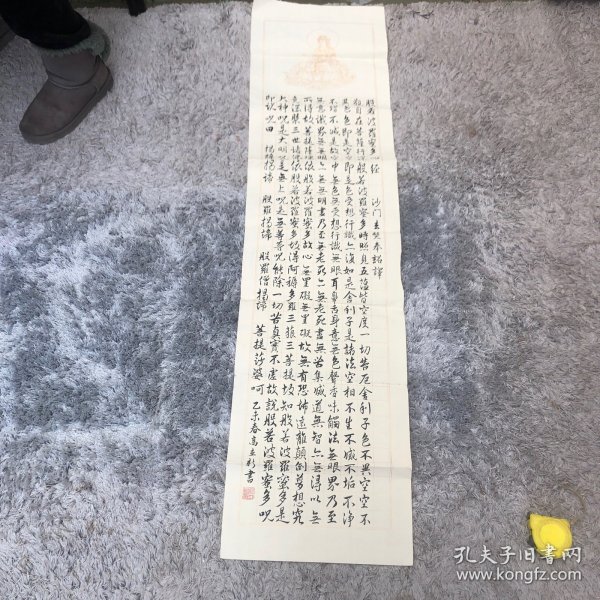 般若波罗蜜多心经 沙门玄奘奉詔譯
觀自在菩薩行深般若波羅蜜多時照見五蕴皆空度一切苦厄舍利子色不異空空不
異色色即是空空即是色受想行識亦復如是舍利子是諸法空相不生不滅不垢不净
不增不減是故空中無色無受想行識無眼耳鼻舌身意無色聲香味觸法無眼界乃至
無意識界無無明亦無無明盡乃至無老死亦無老死盡無苦集滅道無智亦無得以無
所得故菩提薩埵依般若波羅蜜多故心無罣礙無罣礙故無有恐怖遠離顛倒夢想究
竟涅槃三世諸佛依般若波羅蜜多故得阿耨多羅三藐三菩提故知般若波羅蜜多是
大神咒是大明咒是無上咒是無等等咒能除一切苦真實不虚故說般若波羅蜜多咒
即說咒曰 揭諦揭諦 般羅揭諦 般羅僧揭諦 菩提莎婆呵 乙未春高 書
孔夫子旧书网
www.kongfz.com